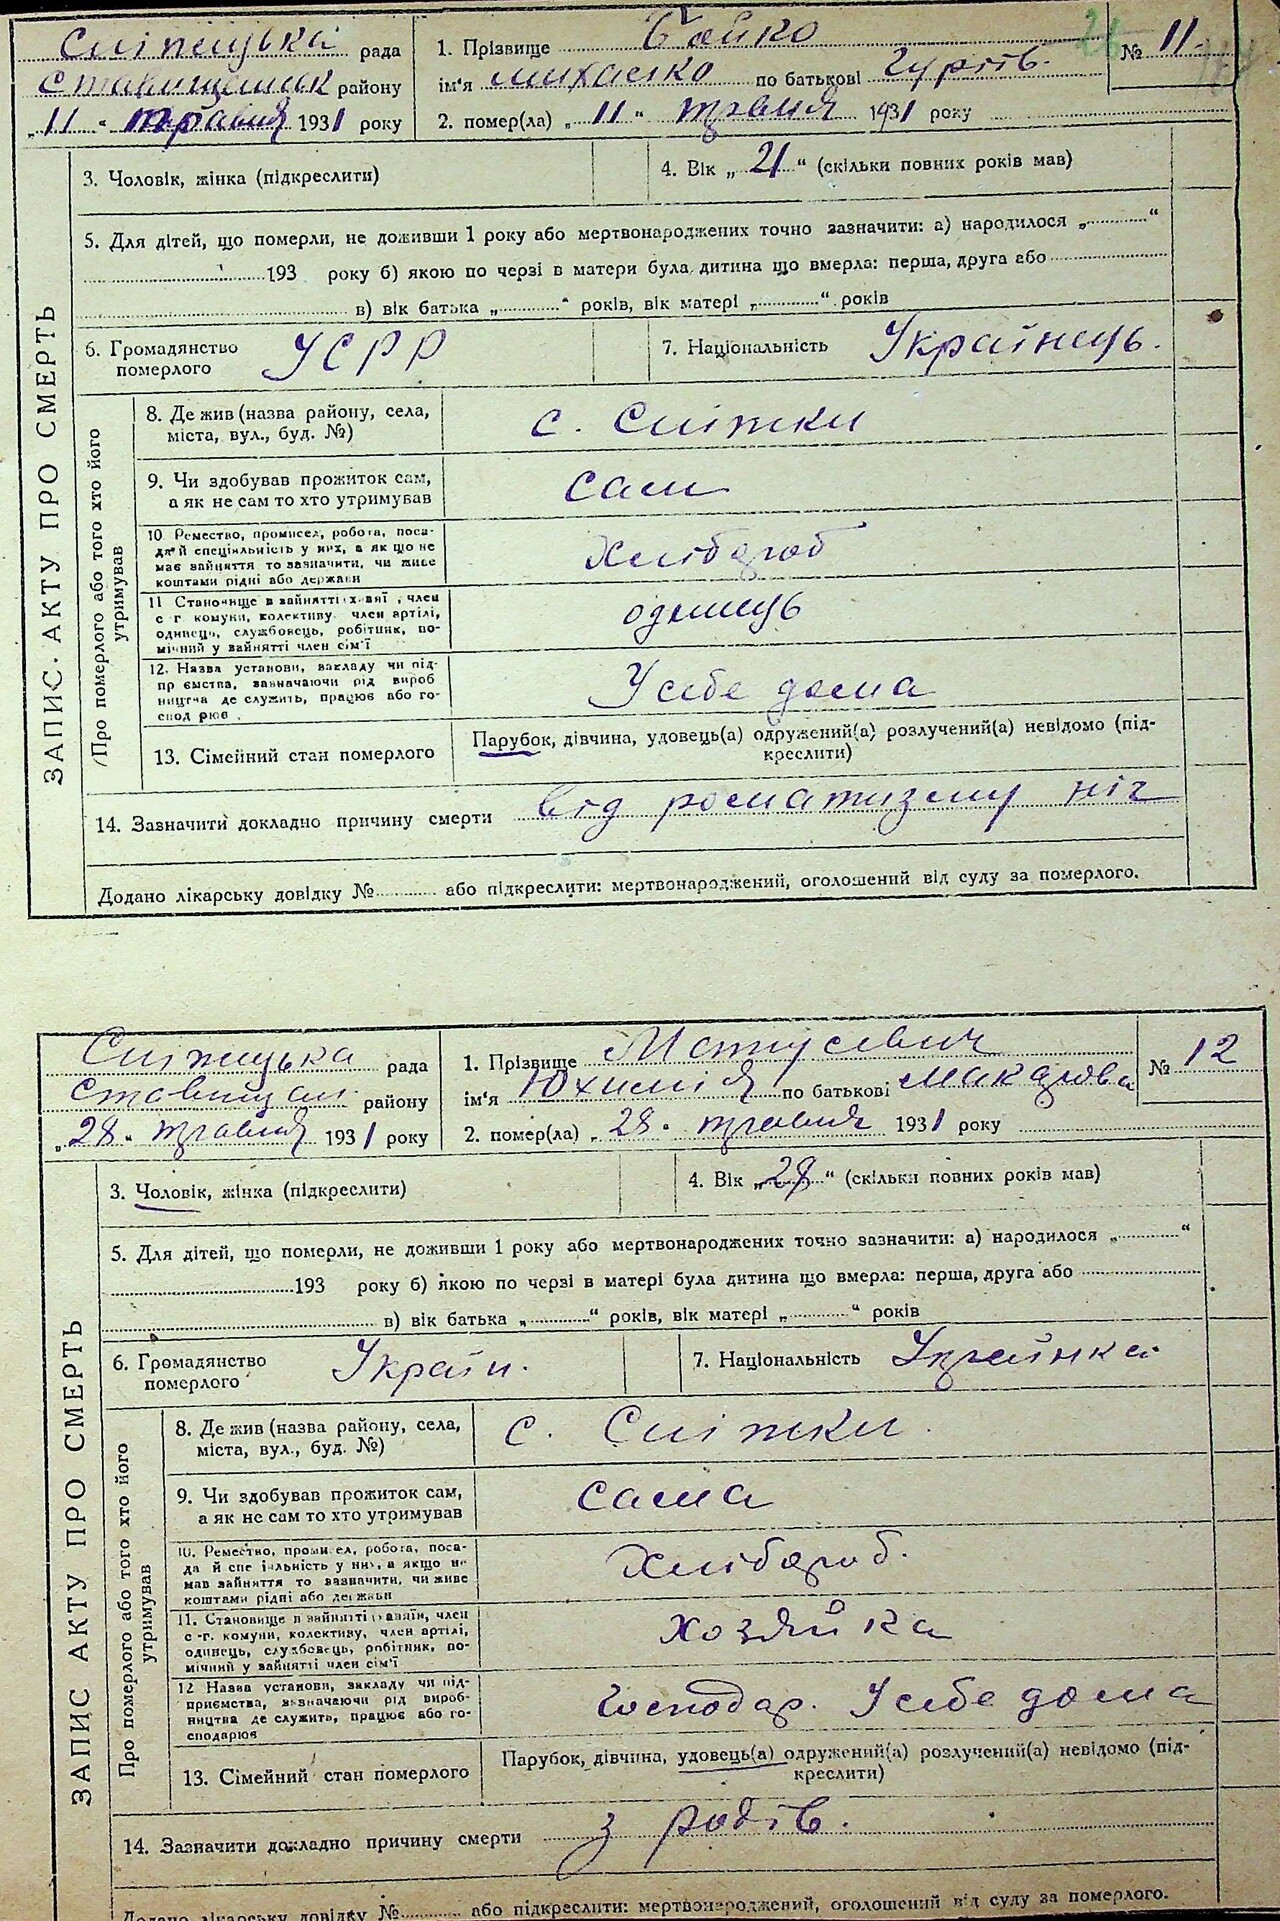 Сніжицька рада
Ставищанськ району
„ 11 " травня 1931 року
1. Прізвище Бойко № 11.
ім'я Михалко по батькові
2. помер(ла) „ 11 " травня 1931 року
ЗАПИС АКТУ ПРО СМЕРТЬ
3. Чоловік, жінка (підкреслити)
4. Вік „ 21 " (скільки повних років мав)
5. Для дітей, що померли, не доживши 1 року або мертвонароджених точно зазначити: а) народилося „ "
193 року б) якою по черзі в матери була дитина що вмерла: перша, друга або
в) вік батька „ " років, вік матері „ " років
6. Громадянство УСРР
померлого
7. Національність Українець.
Про померлого або того хто його утримував
8. Де жив (назва району, села,
міста, вул., буд. №)
с. Сніжки
9. Чи здобував прожиток сам,
а як не сам то хто утримував
сам
10 Ремество, промисел, робота, поса-
да й спеціяльність у них, а як що не
має зайняття то зазначити, чи живе
коштами рідні або держави
Хлібороб
11 Становище в зайнятті: хазяї , член
с г комуни, колективу член артілі,
одинець, службовець, робітник, по-
мічний у зайнятті член сім'ї
одинець
12. Назва установи, закладу чи під-
пр ємства, зазначаючи рід вироб
ництва де служить, працює або го-
спод рює .
У себе дома
13. Сімейний стан померлого
Парубок, дівчина, удовець(а) одружений(а) розлучений(а) невідомо (під-
креслити)
14. Зазначити докладно причину смерти від роматизму ніг
Додано лікарську довідку № або підкреслити: мертвонароджений, оголошений від суду за померлого.
Сніжицька рада
Ставищан. району
„ 28 " травня 1931 року
1. Прізвище Матусевич № 12
ім'я Юхимія по батькові Макарова
2. помер(ла) „ 28 " травня 1931 року
ЗАПИС АКТУ ПРО СМЕРТЬ
3. Чоловік, жінка (підкреслити)
4. Вік „ 28 " (скільки повних років мав)
5. Для дітей, що померли, не доживши 1 року або мертвонароджених точно зазначити: а) народилося „ "
193 року б) якою по черзі в матері була дитина що вмерла: перша, друга або
в) вік батька „ " років, вік матері „ " років
6. Громадянство Україн.
померлого
7. Національність Українка
Про померлого або того хто його утримував
8. Де жив (назва району, села,
міста, вул., буд. №)
с. Сніжки.
9. Чи здобував прожиток сам,
а як не сам то хто утримував
сама
10. Ремество, промисел, робота, поса-
да й спеціяльність у них, а якщо не
мав зайняття то зазначити, чи живе
коштами рідні або держави
Хлібороб.
11. Становище в зайнятті хазяїн, член
с-г. комуни, колективу, член артілі,
одинець, службовець, робітник, по-
мічний у зайнятті член сім'ї
хозяйка
12 Назва установи, закладу чи під-
приємства, зазначаючи рід вироб-
ництва де служить, працює або го-
сподарює
Господар. У себе дома
13. Сімейний стан померлого
Парубок, дівчина, удовець(а) одружений(а) розлучений(а) невідомо (під-
креслити)
14. Зазначити докладно причину смерти з родів.
Додано лікарську довідку № або підкреслити: мертвонароджений, оголошений від суду за померлого.